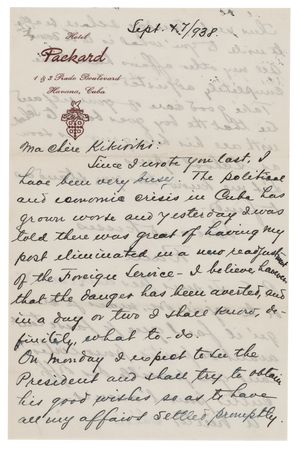 Sept. 17/938.
Hotel
Packard
1 & 3 Prado Boulevard
Havana, Cuba
Ma Chère Kikiriki:
Since I wrote you last, I
have been very busy. The political
and economic crisis in Cuba has
grown worse and yesterday I was
told there was great of having my
post eliminated in a new readjustment
of the Foreign Service - I believe, however
that the danger has been averted, and
in a day or two I shall know, de-
finitely, what to do.
On Monday I expect to see the
President and shall try to obtain
his good wishes so as to have
all my affairs settled promptly.